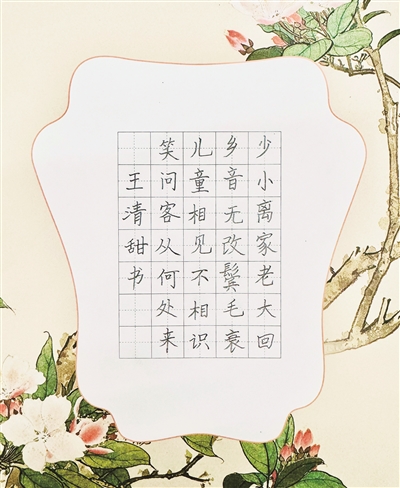 少小离家老大回
乡音无改鬓毛衰
儿童相见不相识
笑问客从何处来
王清甜书